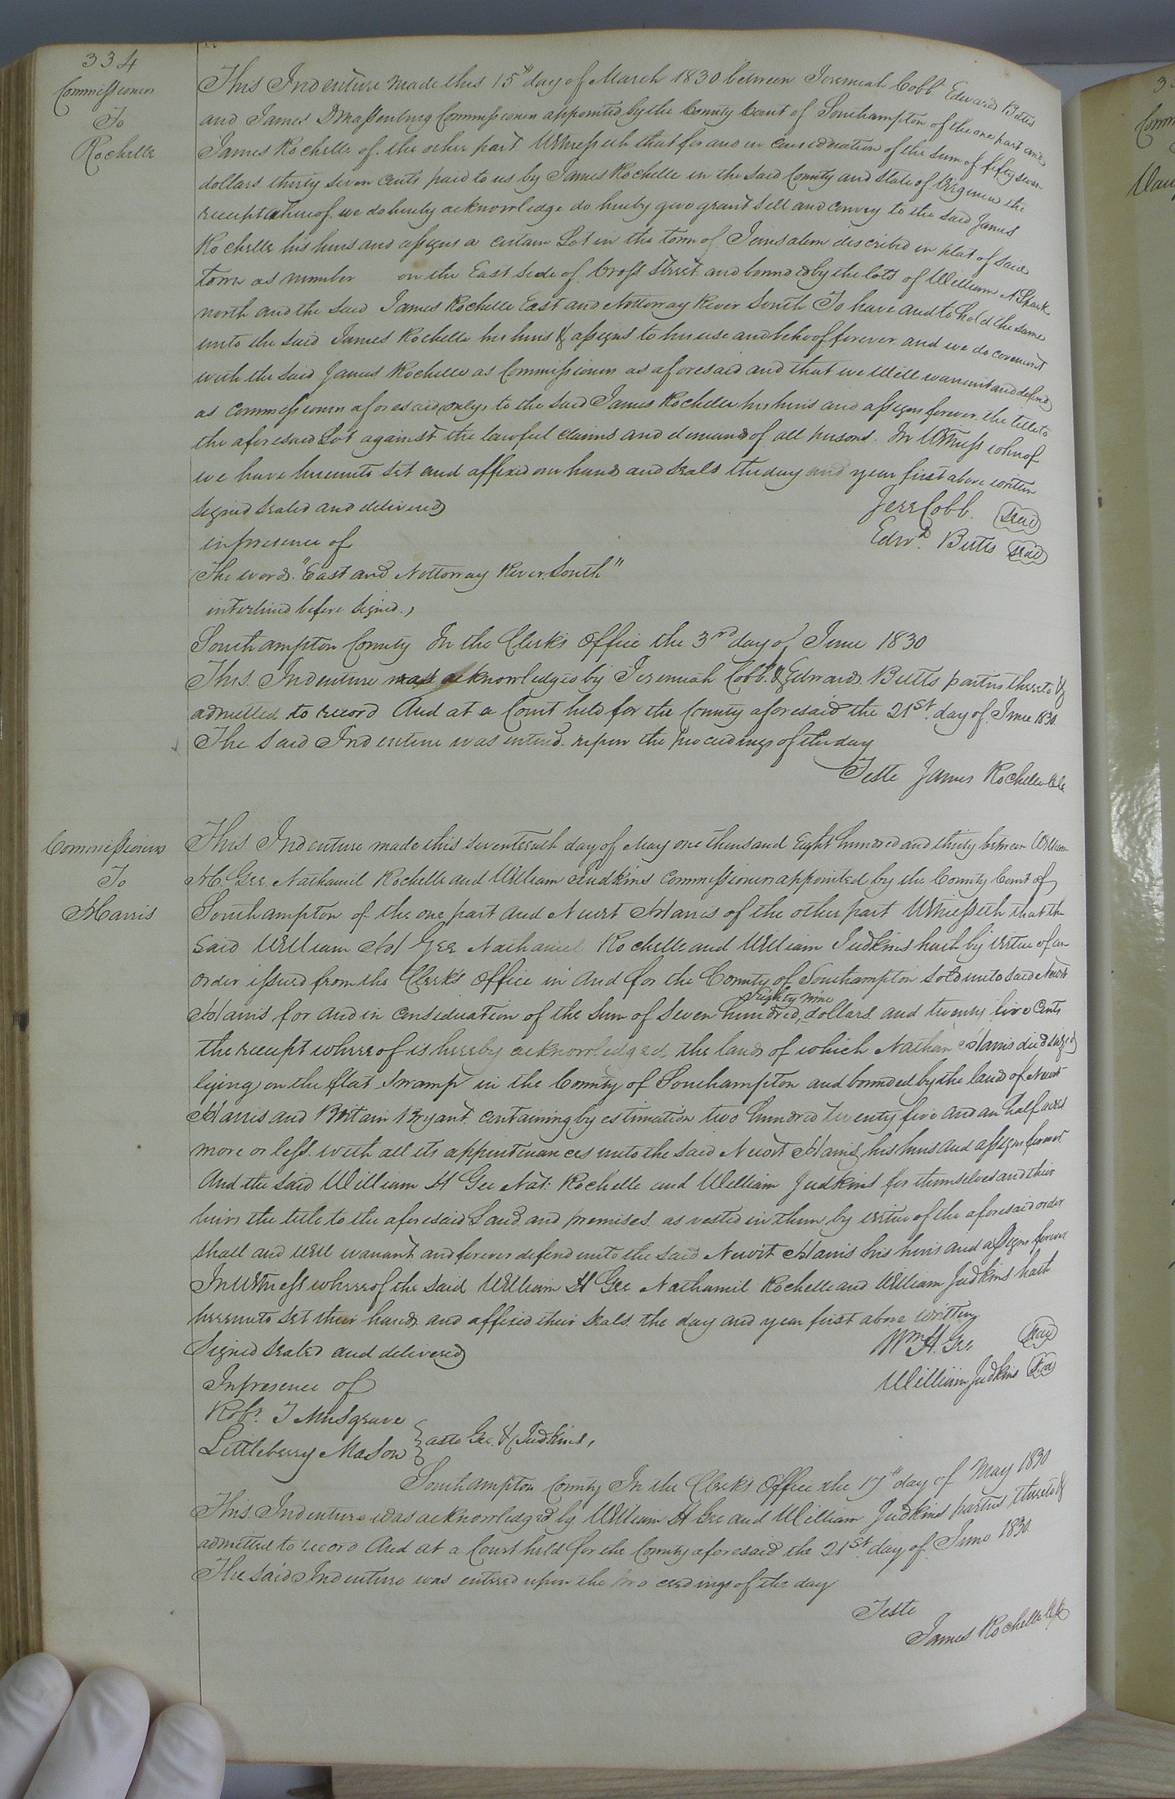 334
Commissioners
To
Rochelle
This Indenture made this 15th day of March 1830 between Jeremiah Cobb Edward Butts
and James D Massenburg Commissioners appointed by the County Court of Southampton of the one part and
James Rochelle of the other part Witnesseth that for and in consideration of the sum of fifty seven
dollars thirty seven cents paid to us by James Rochelle in the said County and State of Virginia the
receipt whereof we do hereby acknowledge do hereby give grant sell and convey to the said James
Rochelle his heirs and assigns a certain Lot in the town of Jerusalem discribed in plat of said
town as number on the East side of Cross Street and bounded by the lots of William N
north and the said James Rochelle East and Nottoway River South To have and to hold the same
unto the said James Rochelle his heirs & assigns to his use and behoof forever and we do covenant
with the said James Rochelle as Commissioners as aforesaid and that we will warrant and defend
as commissioners aforesaid only, to the said James Rochelle his heirs and assigns forever the title to
the aforesaid Lot against the lawful claims and demands of all persons. In Witness whereof
we have hereunto set and affixed our hands and seals the day and year first above written
Signed sealed and delivered
in presence of
The words "East and Nottoway River South"
interlined before signed.,
Jere Cobb. Seal
Edwd. Butts Seal
Southampton County In the Clerk's Office the 3rd day of June 1830
This Indenture was acknowledged by Jeremiah Cobb & Edward Butts parties thereto &
admitted to record And at a Court held for the County aforesaid the 21st day of June 1830
The said Indenture was entered upon the proceedings of the day
Teste James Rochelle Clk
Commissioners
To
Harris
This Indenture made this seventeenth day of May one thousand Eight hundred and thirty between William
H. Gee Nathaniel Rochelle and William Judkins commissioners appointed by the County Court of
Southampton of the one part and Newit Harris of the other part Witnesseth that the
said William H Gee Nathaniel Rochelle and William Judkins hath by virtue of an
order issued from the Clerk's Office in and for the County of Southampton sold unto said Newit
Eighty nine
Harris for and in consideration of the sum of seven hundred, dollars and twenty five cents
the receipt whereof is hereby acknowledged, the land of which Nathan Harris died seized
lying on the flat Swamp in the County of Southampton and bounded by the land of Newit
Harris and Britain Bryant containing by estimation two hundred twenty five and an half acres
more or less with all its appurtenances unto the said Newit Harris, his heirs and assigns forever
And the said William H Gee Nat: Rochelle and William Judkins for themselves and their
heirs the title to the aforesaid Land and premises as vested in them by virtue of the aforesaid order
shall and will warrant and forever defend unto the said Newit Harris his heirs and assigns forever
In Witness whereof the said William H Gee Nathaniel Rochelle and William Judkins hath
hereunto set their hands and affixed their seals the day and year first above written
Signed sealed and delivered
In presence of
Robt. T Musgrave
Littleberry Mason
as to Gee & Judkins,
Wm H. Gee Seal
William Judkins Seal
Southampton County In the Clerk's Office the 17th day of May 1830
This Indenture was acknowledged by William H Gee and William Judkins parties thereto &
admitted to record And at a Court held for the County aforesaid the 21st day of June 1830
The said Indenture was entered upon the proceedings of the day
Teste
James Rochelle Clk